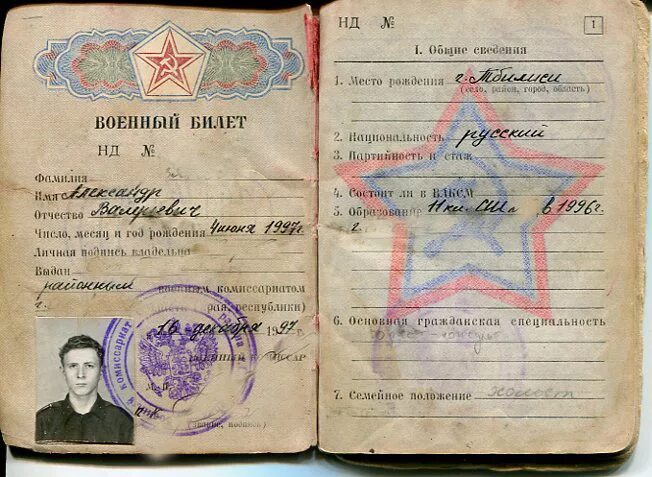 ВОЕННЫЙ БИЛЕТ
НД №
Фамилия
Имя Александр
Отчество Валерьевич
Число, месяц и год рождения 4 июня 1997г.
Личная подпись владельца
Выдан
районным военным комиссариатом
г.
рая, республики)
16 декабря 1997
комиссариат
М. П.
(звание, подпись)
НД №
1
I. Общие сведения
1. Место рождения г. Тбилиси
(село, район, город, область)
2. Национальность русский
3. Партийность и стаж
4. Состоит ли в ВЛКСМ
5. Образование 11 кл. в 1996г.
г.
6. Основная гражданская специальность
7. Семейное положение холост